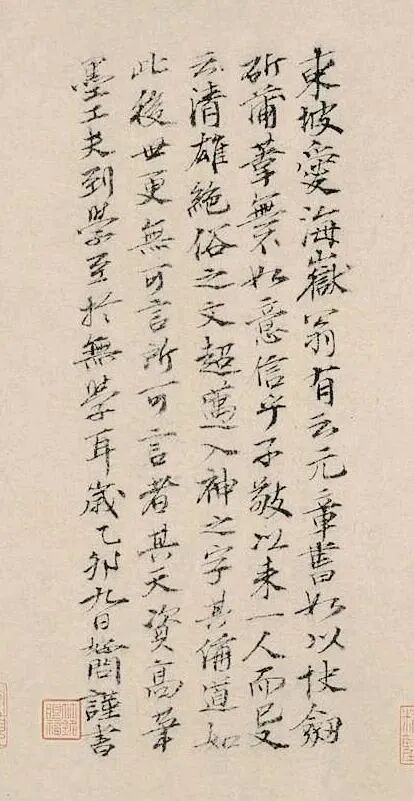 東坡愛海嶽翁有云元章書如以快劒
斫蒲葦無不如意信乎子敬以来一人而已又
云清雄絶俗之文超邁入神之字其偁道如
此後世更無可言所可言者其天資高筆
墨工夫到學至於無學耳歲乙卯九日謹書